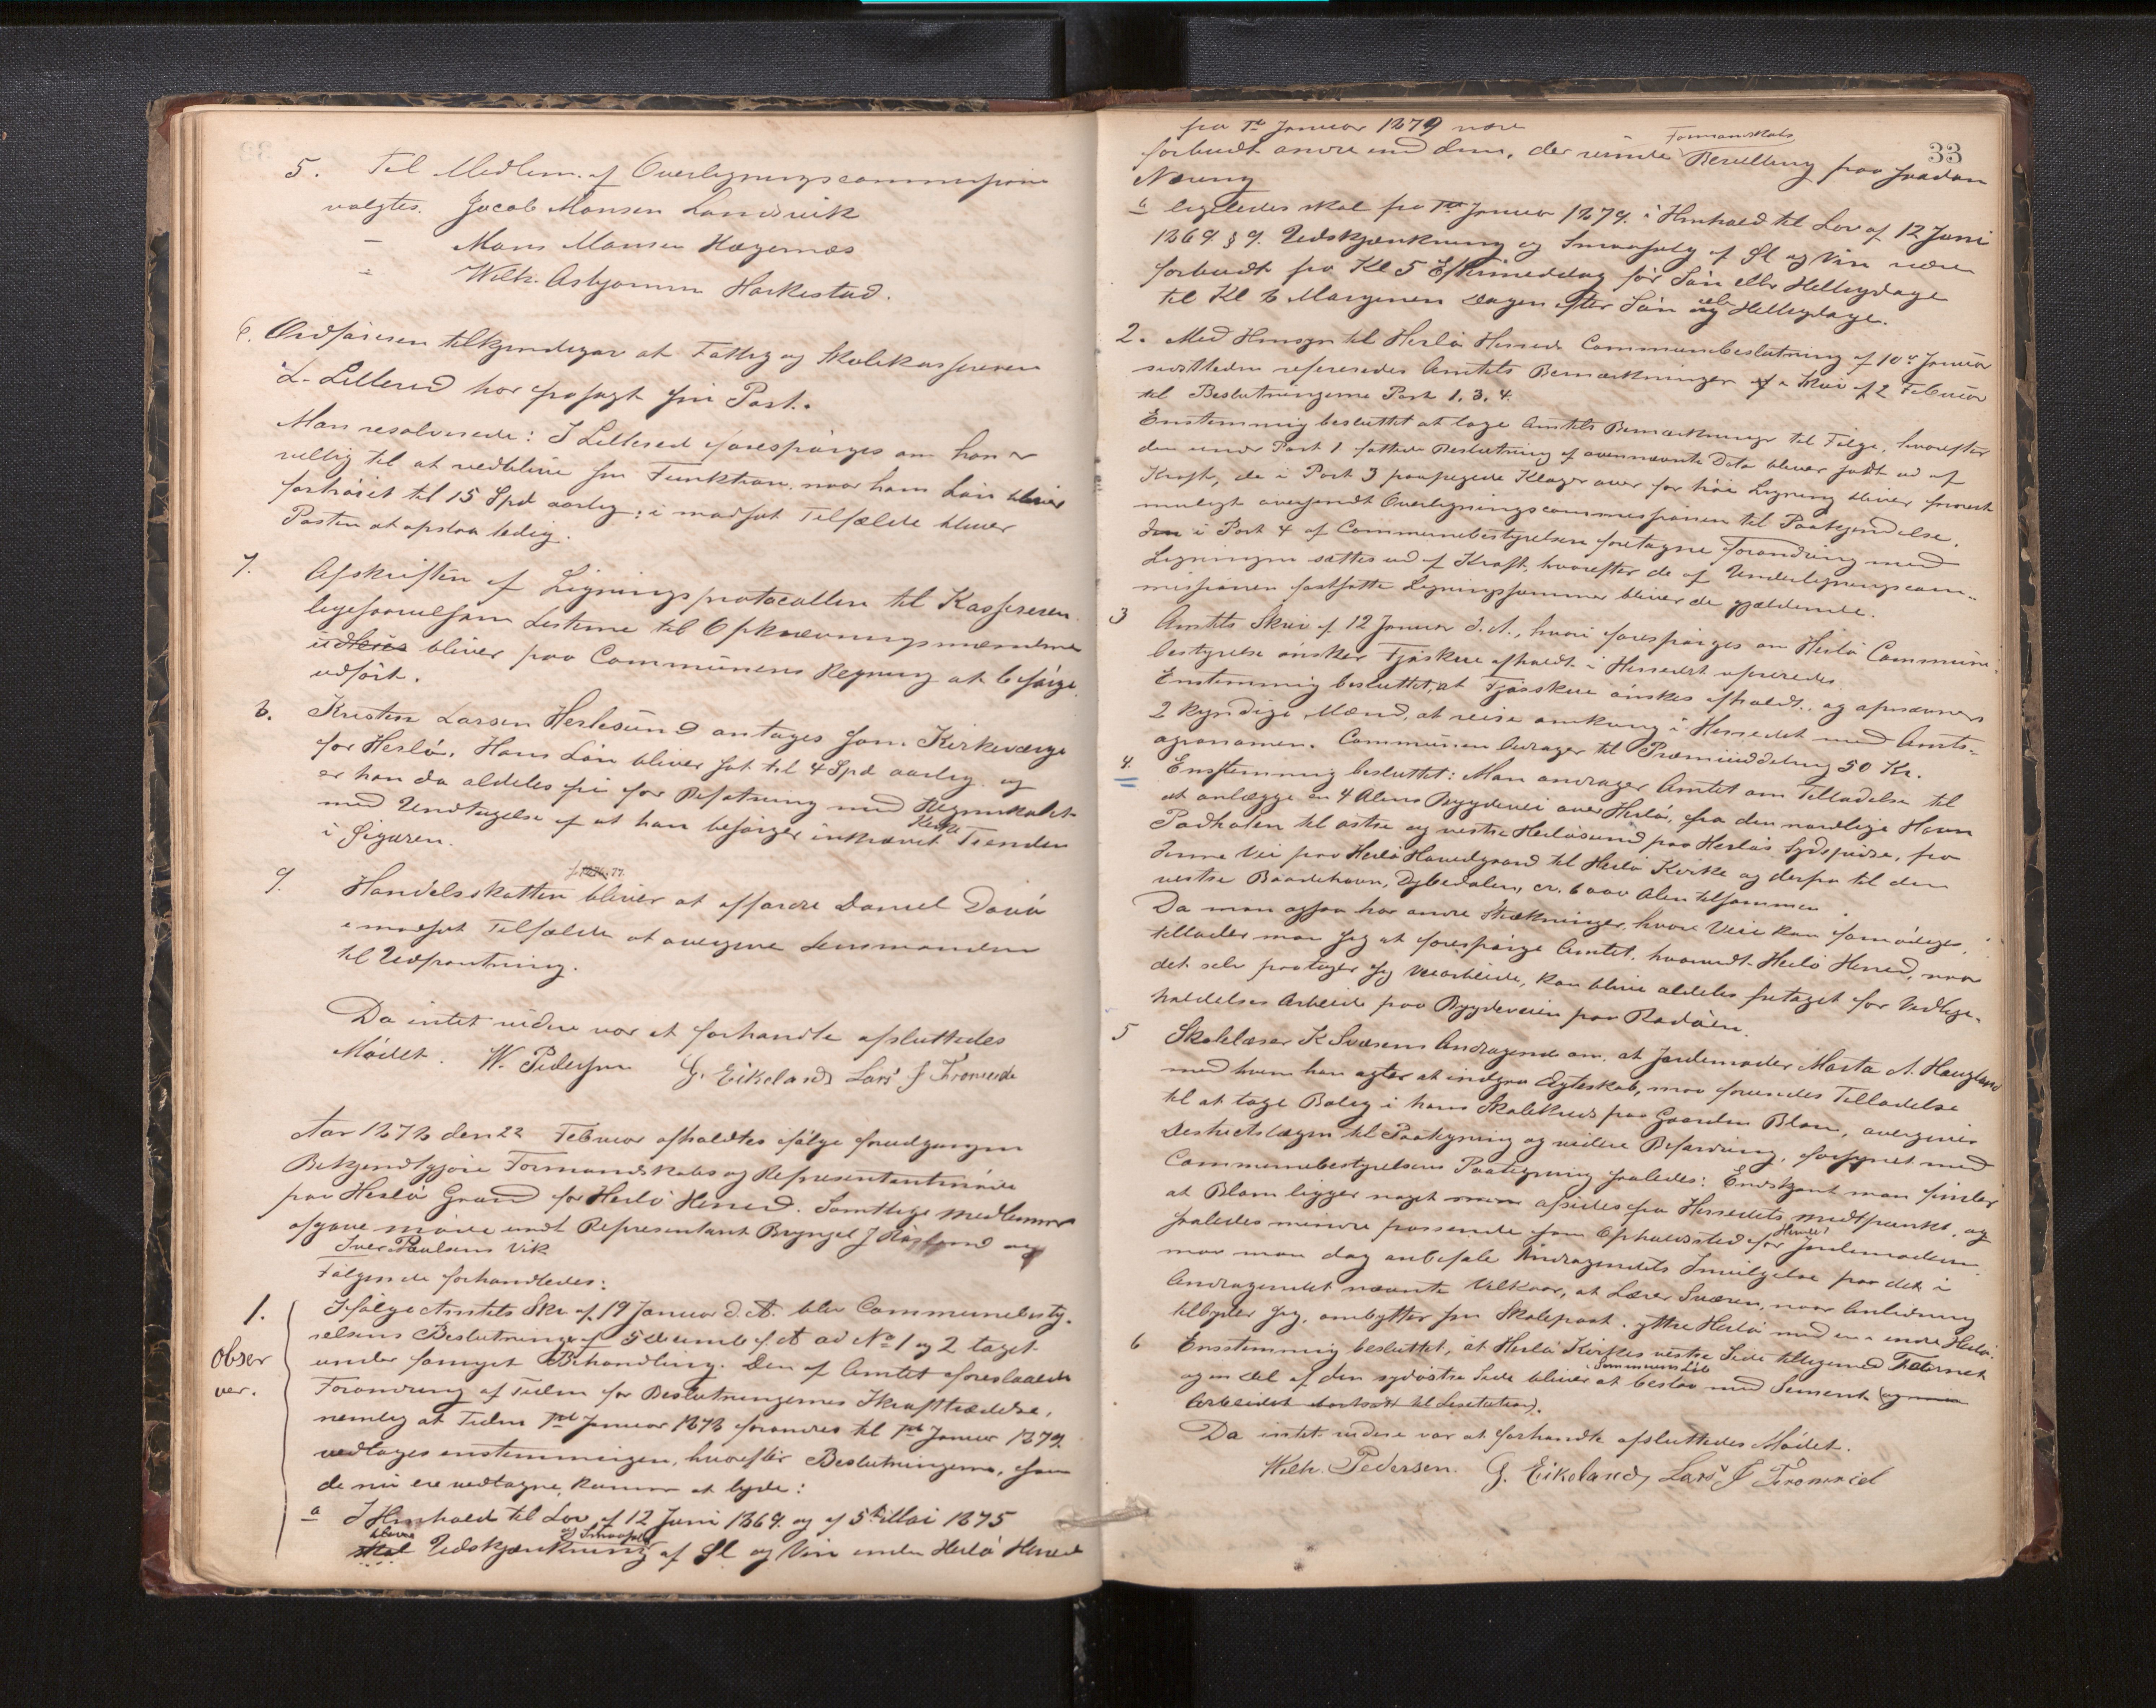 5. Til Medlem. af Overligningscommissionen
valgtes. Jacob Monsen Landsvik
— Mons Monsen Hægernæs
— Wilh. Asbjornsen Harkestad.
6. Ordføreren tilkjendegav at Fattig og Skolekassereren
L. Lillerud har frasagt sin Post.
Man resolverede: J Lillerud forespørges om han er
villig til at vedblive sin Funktion. naar hans Løn bliver
forhøiet til 15 Spd aarlig; i modsat Tilfælde bliver
Posten at opslaa ledig.
7. Afskriften af Ligningsprotocollen til Kassereren
ligesaavelsom Listerne til Opkrævningsmændene
bliver paa Communens Regning at besørge
udført.
8. Kristen Larsen Herlesund antages som Kirkeværge
for Herlö. Hans Løn bliver sat til 4 Spd aarlig og
er han da aldeles fri for Befatning med Regnskabet
med Undtagelse af at han besørger inkrævet Kirke Tienden
i Sigaren.
9. Handelsskatten for 1876, 77. bliver at affordre Daniel Davö
i modsat Tilfælde at overgive Lensmanden
til Udpantning.
Da intet videre var at forhandle afsluttedes
Mødet. W. Pedersen G. Eikeland Lars J Fromreide
Aar 1878 den 22 Februar afholdtes ifølge forudgangen
Bekjendtgjøre Formandskabs og Representantmøde
paa Herlö Grand for Herlö Herred. Samtlige Medlemmer
afgave møde undt Representant Bryngel J Høsland og
Iver Paulsen Vik
Følgende forhandledes:
1. Ifølge Amtets Skr. af 19 Januar d. A. blev Communebesty-
obser relsens Beslutninger af 5 December f. A. ad No 1 og 2 taget
ver. under fornyet Behandling. Den af Amtet foreslaaede
Forandring af Tiden for Beslutningernes Ikrafttrædelse,
nemlig at Tiden 1ste Januar 1878 forandres til 1ste Januar 1879
vedtages enstemmingen, hvorefter Beslutningerne, som
de nu ere vedtagne, kommer at lyde:
a I Henhold til Lov af 12 Juni 1869. og af 5te Mai 1875
skal bliver Udskjænkning og Smaasalg af Øl og Vin under Herlö Herred
33
fra 1te Januar 1879 være
forbudt andre end dem, der vinde Formandskabs Bevilling paa saadan
Næring
b ligeledes skal fra 1ste Januar 1879. i Henhold til Lov af 12 Juni
1869 § 9. Udskjænkning og Smaasalg af Øl og Vin være
forbudt fra Kl 5 Eftermiddag før Søn eller Helligdage
til Kl 8 Morgenen dagen efter Søn eller Helligdage.
2. Med Hensyn til Herlö Herreds Communebeslutning af 10de Januar
sidstleden refereredes Amtets Bemærkninger i Skriv. af 2 Februar
til Beslutningerne Post 1. 3. 4.
Enstemmig besluttet at tage Amtets Bemærkninger til Følge, hvorefter
den under Post 1 fattede Beslutning af ovennævnte Dato bliver sat ud af
Kraft, de i Post 3 paapegede Klager over for høi Ligning bliver snarest
muligt oversendt Overligningscommissionen til Paakjendelse.
Den i Post 4 af Communebestyrelsen foretagne Forandring med
Ligningen sættes ud af Kraft, hvorefter de af Underligningscom-
missionen fastsatte Ligningssummer bliver de gjældende.
3 Amtets Skriv. af 12 Januar d. A., hvori forespørges om Herlö Commune-
bestyrelse ønsker Fjøskue afholdt i Herredet refereredes.
Enstemmig besluttet, at Fjøsskue ønskes afholdt, og opnævnes
2 kyndige Mænd, at reise omkring i Herredet med Amts-
agronomen. Communen bidrager til Præmieuddeling 50 Kr.
4. Enstemmig besluttet: Man andrager Amtet om Tilladelse til
at anlægge en 4 Alens Bygdevei over Herlö, fra den nordlige Havn
Padholen til østre og vestre Herløsund paa Herløs Sydspidse, fra
denne Vei paa Herlö Hovedgaard til Herlö Kirke og derfra til den
vestre Baadehavn, Dybedalen, cr. 6000 Alen tilsammen.
Da man ogsaa har andre Strækninger, hvor Veie kan fornødiges,
tillader man sig at forespørge Amtet, hvorvidt Herlö Herred, naar
det selv paatager sig Veiarbeide, kan blive aldeles fritaget for Vedlige-
holdelses Arbeide paa Bygdeveien paa Radöen.
5 Skolelærer K Sværens Andragende om, at Jordemoder Marta A. Haugland
med hvem han agter at indgaa Egteskab, maa forundes Tilladelse
til at tage Bolig i hans Skolekreds paa Gaarden Blom, overgives
Destrictslægen til Paategning og videre Befordring, forsynet med
Communebestyrelsens Paategning saaledes: Endskjønt man finder
at Blom ligger noget afsides fra Herredets midtpunkt, og
saaledes mindre passende som Opholdssted for Herredets Jordemoderen
maa man dog anbefale Andragendets Indvilgelse paa det i
Andragendet nævnte Vilkaar, at Lærer Sværen, naar Anledning
tilbyder sig, ombytter sin Skolepost i yttre Herlö med en i indre Herlö.
6 Ensstemmig besluttet, at Herlö Kirkes vestre Side tilligemed Taarnet
og en del af den sydøstre Side bliver i Sommerens Løb at beslaa med Sement (og
Arbeidet bortsat til Licitation).
Da intet videre var at forhandle afsluttedes Mødet.
Wilh. Pedersen. G. Eikeland, Lars J Fromreid